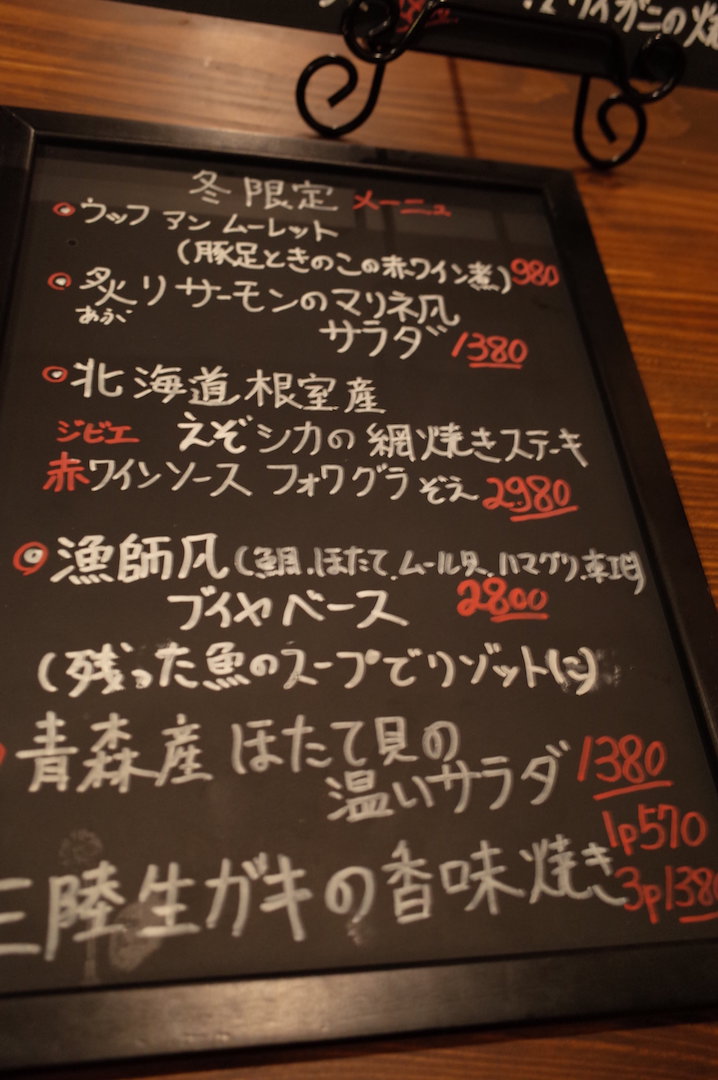 ワイガニの
冬限定 メーニュ
ウッフ アン ムーレット
(豚足ときのこの赤ワイン煮) 980
炙リサーモンのマリネ風
あぶ
サラダ 1380
北海道根室産
ジビエ えぞシカの網焼きステーキ
赤ワインソース フォワグラ ぞえ 2980
漁師風(鯛.ほたて.ムール貝.ハマグリ.車エビ)
ブイヤベース 2800
(残った魚のスープでリゾットに)
青森産 ほたて貝の
温いサラダ 1380
1p570
三陸生ガキの香味焼き 3p1380